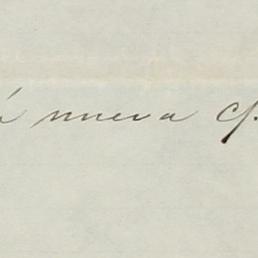 á nueva